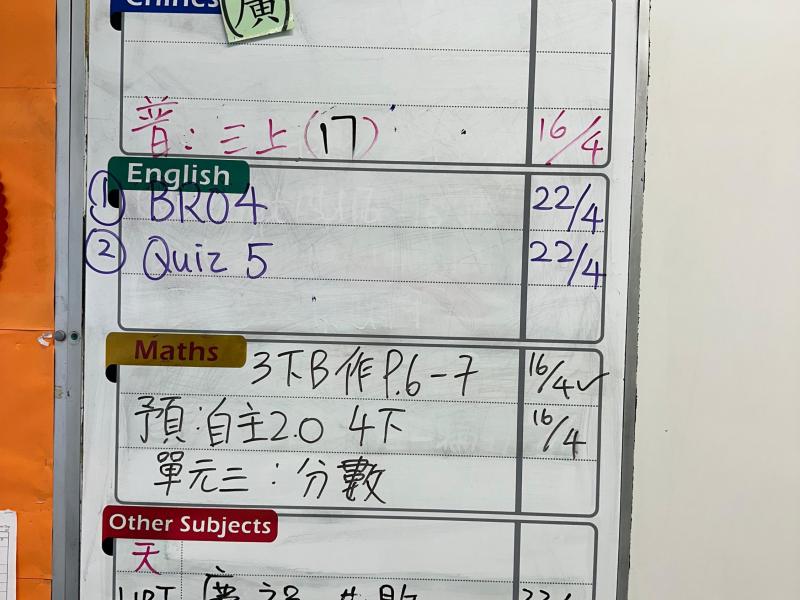 Chines
廣
普：三上(17) 16/4
English
① BR04 22/4
② Quiz 5 22/4
Maths
3下B作 P.6-7 16/4✓
預：自主2.0 4下 16/4
單元三：分數
Other Subjects
天